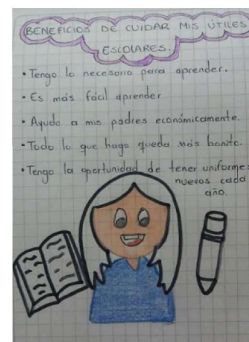 BENEFICIOS DE CUIDAR MIS ÚTILES
ESCOLARES.
• Tengo lo necesario para aprender.
• Es más fácil aprender
• Ayudo a mis padres económicamente.
• Todo lo que hago queda más bonito.
• Tengo la oportunidad de tener uniformes
nuevos cada
año.